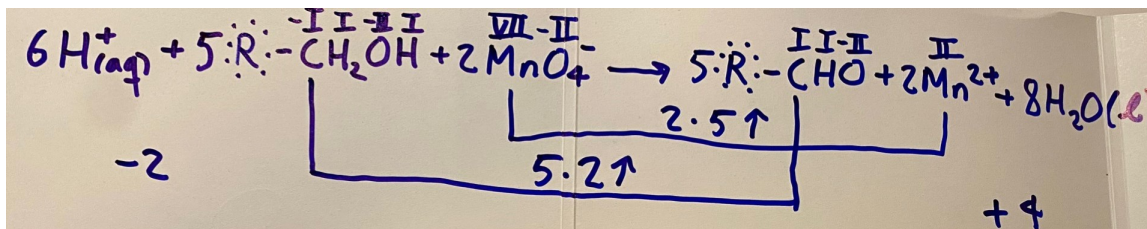 -I I -II I VII -II I I -II II
6H⁺(aq) + 5:R:-CH₂OH + 2MnO₄⁻ → 5:R:-CHO + 2Mn²⁺ + 8H₂O(l
2·5↑
-2 5·2↑
+4